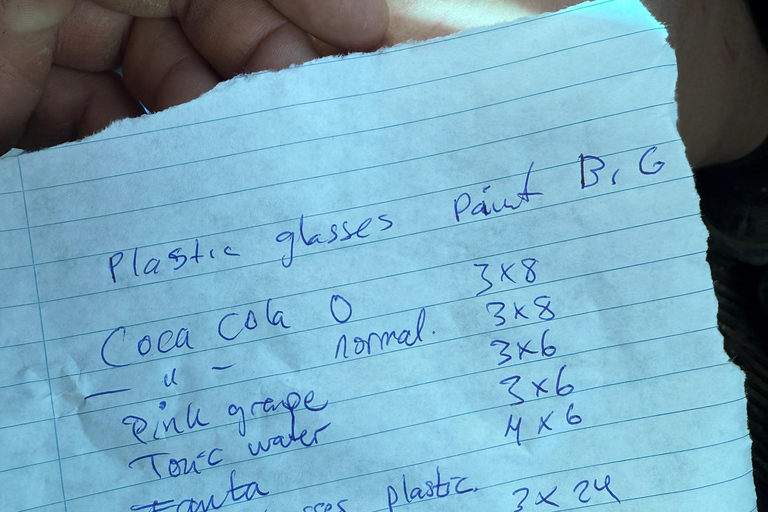 Plastic glasses Paint BIG
Coca Cola O 3x8
— " — normal. 3x8
Pink grape 3x6
Tonic water 3x6
Fanta 4x6
plastic. 3x24